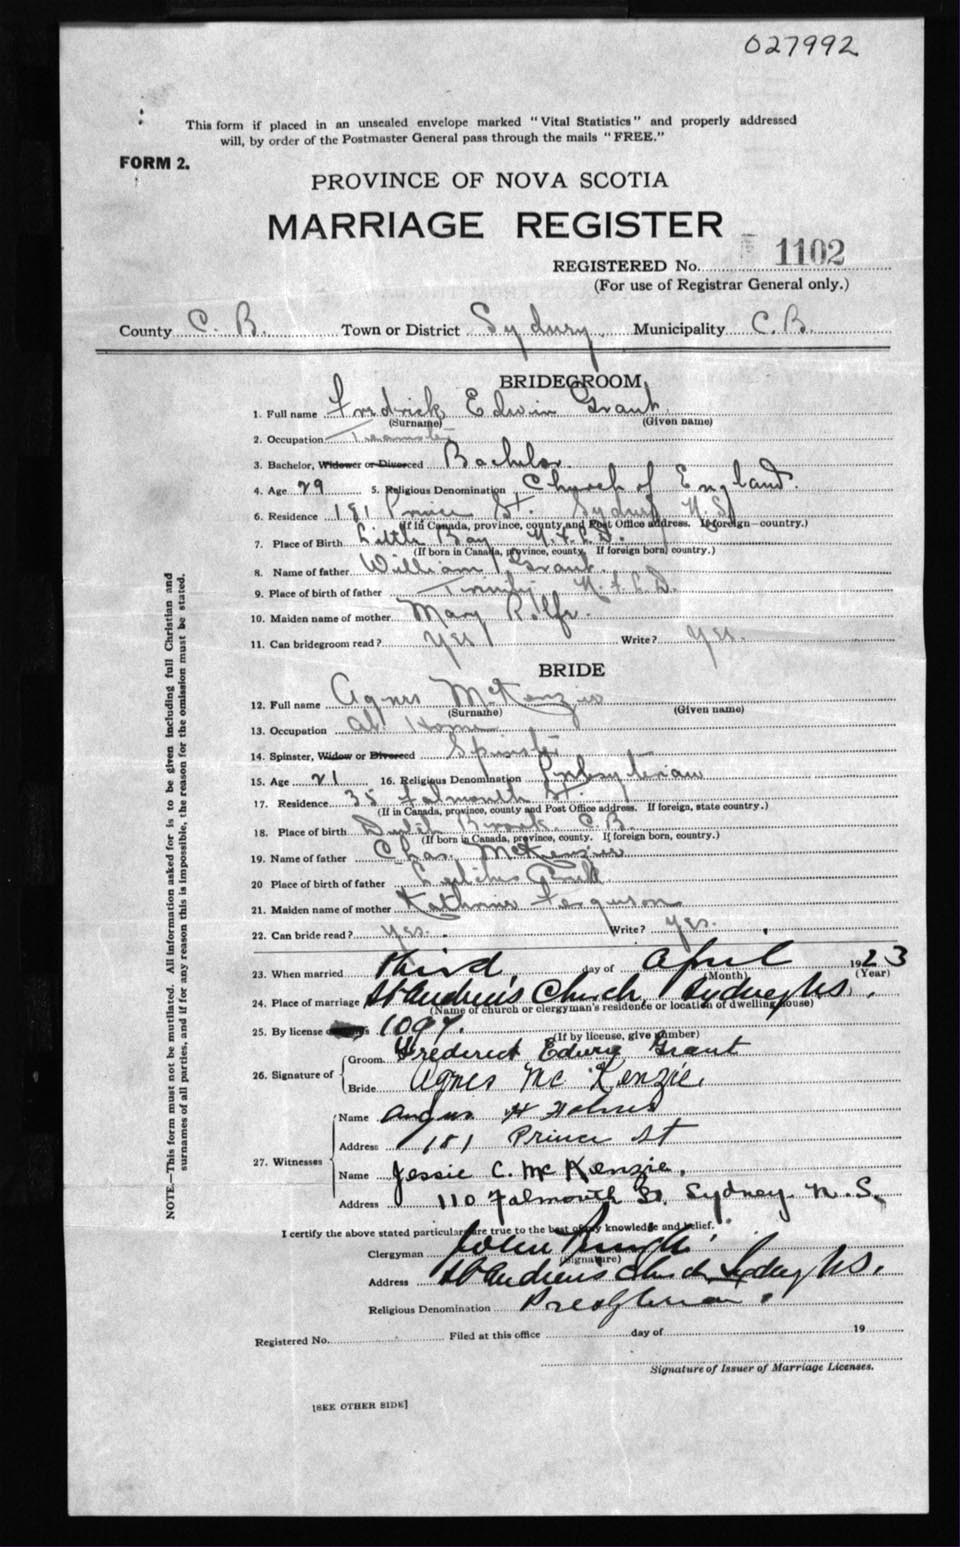 027992
This form if placed in an unsealed envelope marked "Vital Statistics" and properly addressed
will, by order of the Postmaster General pass through the mails "FREE."
FORM 2.
PROVINCE OF NOVA SCOTIA
MARRIAGE REGISTER
REGISTERED No. 1102
(For use of Registrar General only.)
County C. B. Town or District Sydney Municipality C.B.
BRIDEGROOM
1. Full name Fredrick Edwin Grant
(Surname) (Given name)
2. Occupation Teamster
3. Bachelor, Widower or Divorced Bachelor
4. Age 29 5. Religious Denomination Church of England.
6. Residence 181 Prince St. Sydney N.S.
(If in Canada, province, county and Post Office address. If foreign—country.)
7. Place of Birth Little Bay N.F.L.D.
(If born in Canada, province, county. If foreign born, country.)
8. Name of father William Grant.
9. Place of birth of father Trinity N.F.L.D.
10. Maiden name of mother Mary Rolfe.
11. Can bridegroom read? Yes Write? Yes.
BRIDE
12. Full name Agnes McKenzie
(Surname) (Given name)
13. Occupation At Home
14. Spinster, Widow or Divorced Spinster
15. Age 21 16. Religious Denomination Presbyterian
17. Residence 35 Falmouth St.
(If in Canada, province, county and Post Office address. If foreign, state country.)
18. Place of birth Dutch Brook C.B.
(If born in Canada, province, county. If foreign born, country.)
19. Name of father Chas McKenzie
20 Place of birth of father
21. Maiden name of mother Kathrine Ferguson
22. Can bride read? Yes. Write? Yes.
23. When married Third day of April 1923
(Month) (Year)
24. Place of marriage St Andrew's Church, Sydney NS.
(Name of church or clergyman's residence or location of dwelling house)
25. By license 1097.
(If by license, give number)
26. Signature of Groom Frederick Edwin Grant
Bride Agnes Mc Kenzie.
27. Witnesses Name Angus H Holmes
Address 181 Prince St
Name Jessie C. McKenzie.
Address 110 Falmouth St. Sydney. N.S.
I certify the above stated particulars are true to the best of my knowledge and belief.
Clergyman John Pringle
(Signature)
Address St Andrew's Church Sydney NS.
Religious Denomination Presbyterian.
Registered No. Filed at this office day of 19
Signature of Issuer of Marriage Licenses.
[SEE OTHER SIDE]
NOTE.—This form must not be mutilated. All information asked for is to be given including full Christian and
surnames of all parties, and if for any reason this is impossible, the reason for the omission must be stated.